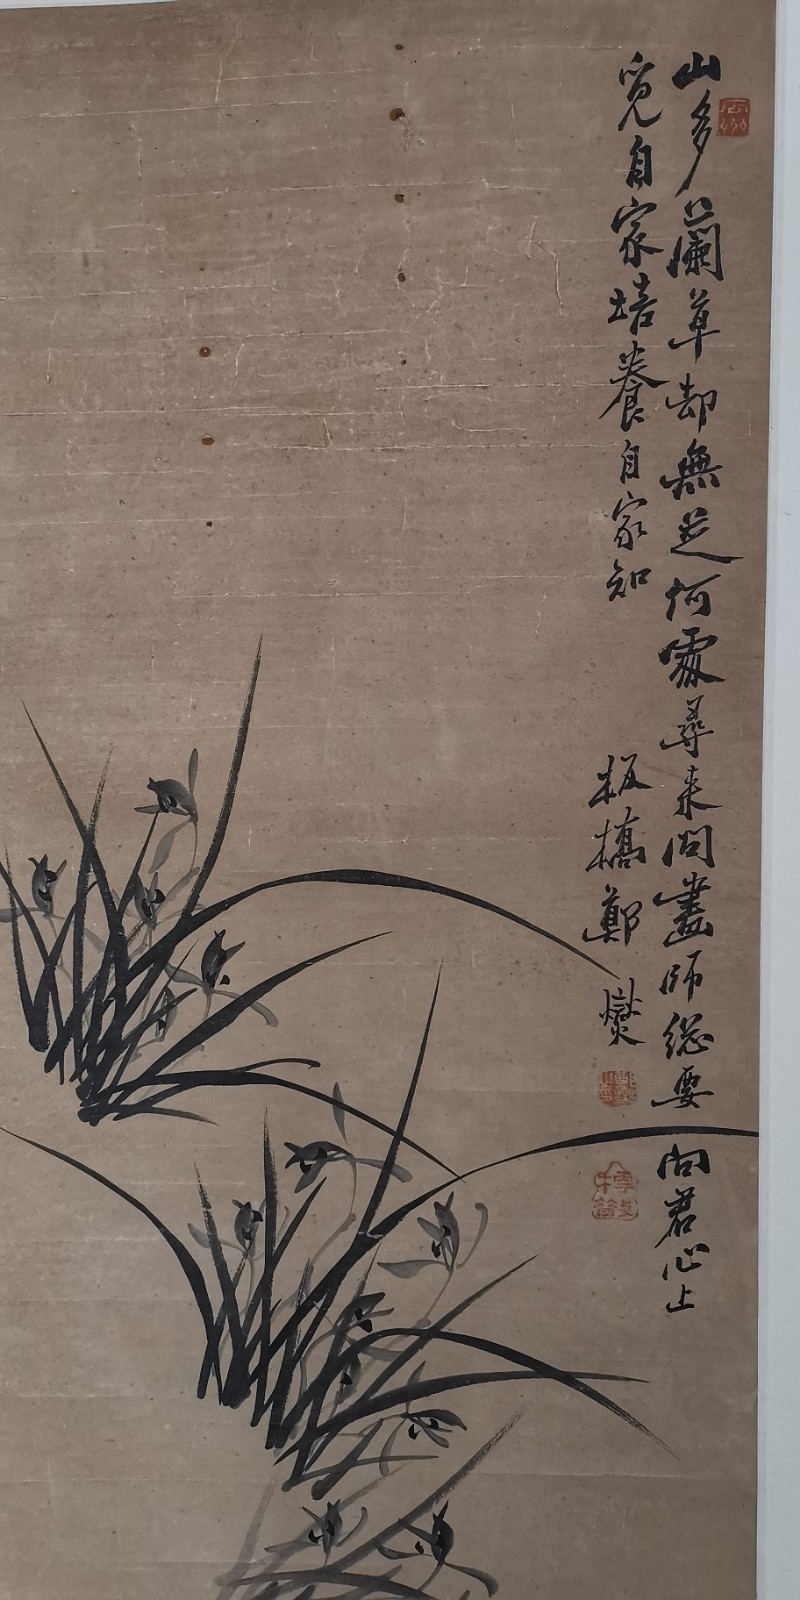 山多蘭草却無芝何處尋来問畫師緫要向君心上
覓自家培養自家知
板橋鄭燮